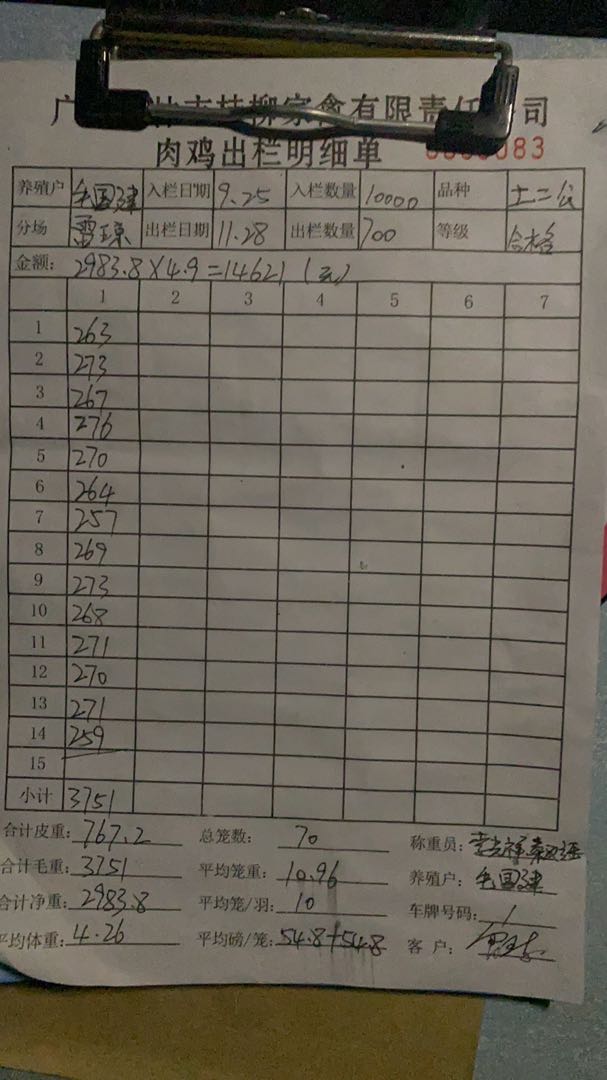 广 桂柳家禽有限责任公司
肉鸡出栏明细单 083
养殖户 毛国建 入栏日期 9.25 入栏数量 10000 品种 土二公
分场 雷琼 出栏日期 11.28 出栏数量 700 等级 合格
金额: 2983.8×4.9=14621(元)
1 2 3 4 5 6 7
1 263
2 273
3 267
4 276
5 270
6 264
7 257
8 269
9 273
10 268
11 271
12 270
13 271
14 259
15
小计 3751
合计皮重: 767.2 总笼数: 70 称重员:
合计毛重: 3751 平均笼重: 10.96 养殖户: 毛国建
合计净重: 2983.8 平均笼/羽: 10 车牌号码: /
平均体重: 4.26 平均磅/笼: 54.8+54.8 客户: